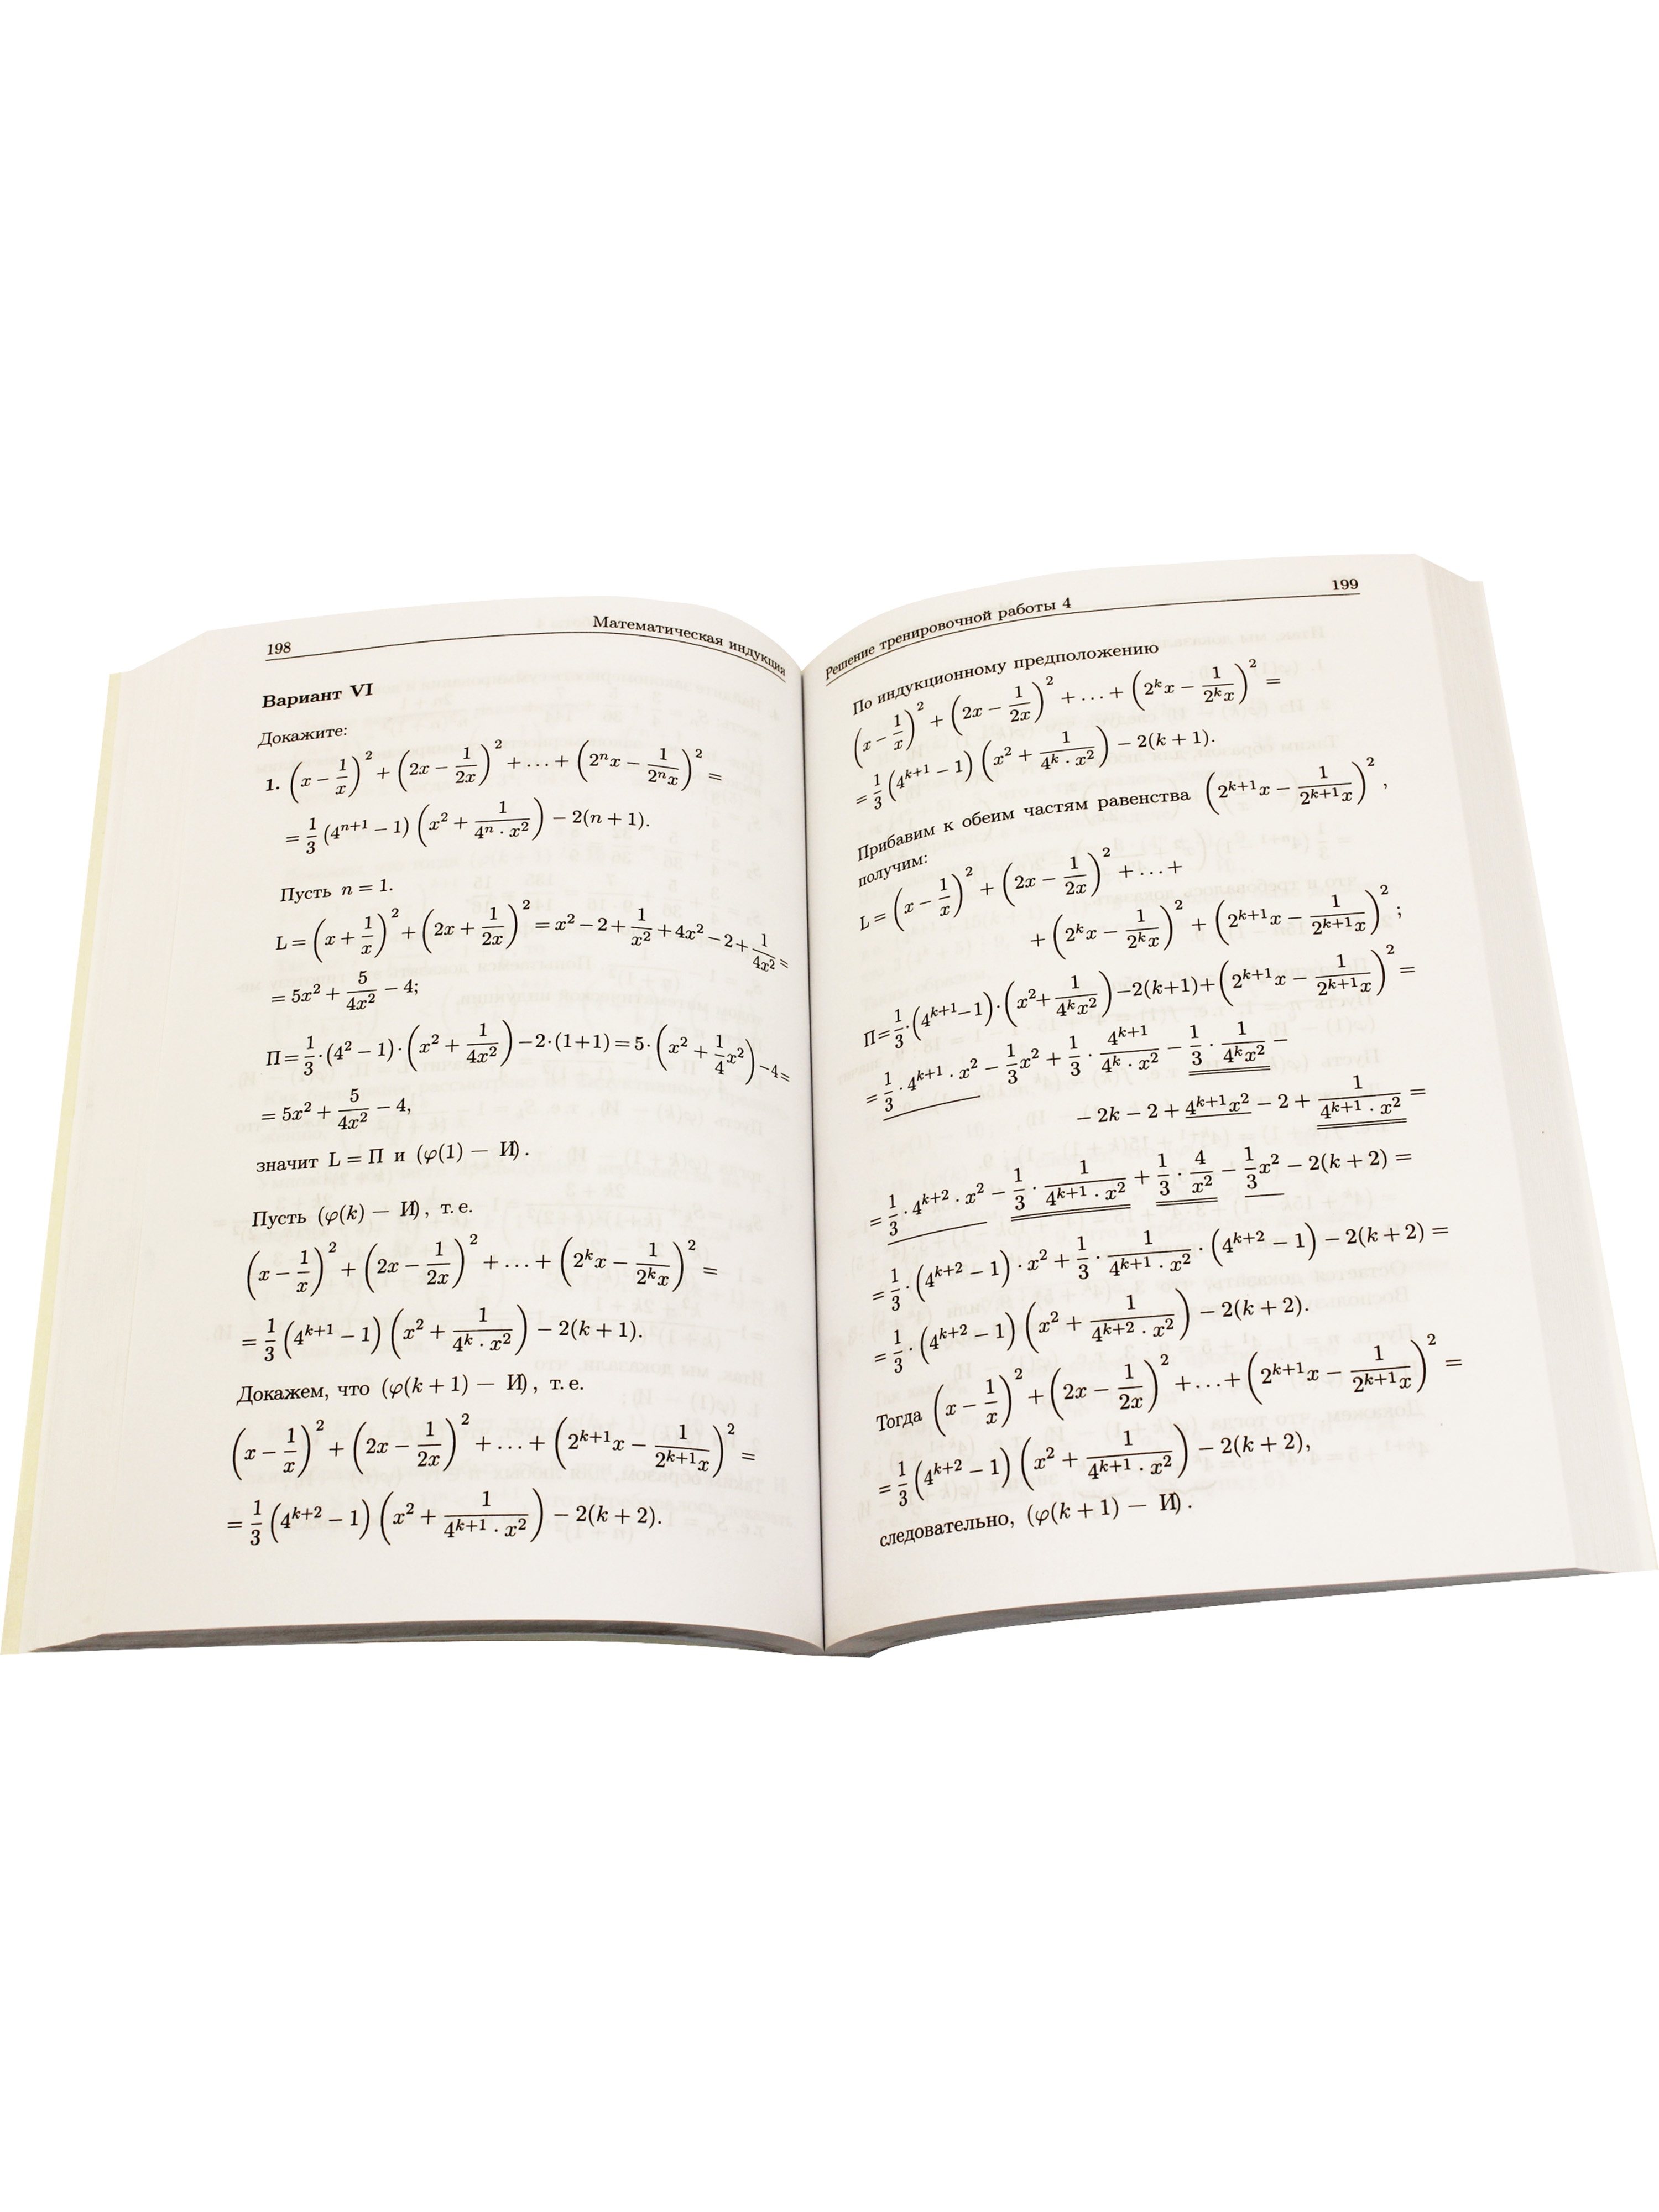 198 Математическая индукция
Вариант VI
Докажите:
1. (x − 1/x)² + (2x − 1/2x)² + … + (2ⁿx − 1/2ⁿx)² =
= 1/3 (4ⁿ⁺¹ − 1) (x² + 1/(4ⁿ · x²)) − 2(n + 1).
Пусть n = 1.
L = (x + 1/x)² + (2x + 1/2x)² = x² − 2 + 1/x² + 4x² − 2 + 1/4x² =
= 5x² + 5/4x² − 4;
П = 1/3 · (4² − 1) · (x² + 1/4x²) − 2 · (1 + 1) = 5 · (x² + 1/4 x²) − 4 =
= 5x² + 5/4x² − 4,
значит L = П и (φ(1) — И).
Пусть (φ(k) — И), т. е.
(x − 1/x)² + (2x − 1/2x)² + … + (2ᵏx − 1/2ᵏx)² =
= 1/3 (4ᵏ⁺¹ − 1) (x² + 1/(4ᵏ · x²)) − 2(k + 1).
Докажем, что (φ(k + 1) — И), т. е.
(x − 1/x)² + (2x − 1/2x)² + … + (2ᵏ⁺¹x − 1/2ᵏ⁺¹x)² =
= 1/3 (4ᵏ⁺² − 1) (x² + 1/(4ᵏ⁺¹ · x²)) − 2(k + 2).
Решение тренировочной работы 4 199
По индукционному предположению
(x − 1/x)² + (2x − 1/2x)² + … + (2ᵏx − 1/2ᵏx)² =
= 1/3 (4ᵏ⁺¹ − 1) (x² + 1/(4ᵏ · x²)) − 2(k + 1).
Прибавим к обеим частям равенства (2ᵏ⁺¹x − 1/2ᵏ⁺¹x)²,
получим:
L = (x − 1/x)² + (2x − 1/2x)² + … +
+ (2ᵏx − 1/2ᵏx)² + (2ᵏ⁺¹x − 1/2ᵏ⁺¹x)²;
П = 1/3 · (4ᵏ⁺¹ − 1) · (x² + 1/4ᵏx²) − 2(k+1) + (2ᵏ⁺¹x − 1/2ᵏ⁺¹x)² =
= 1/3 · 4ᵏ⁺¹ · x² − 1/3 x² + 1/3 · 4ᵏ⁺¹/(4ᵏ · x²) − 1/3 · 1/4ᵏx² −
− 2k − 2 + 4ᵏ⁺¹x² − 2 + 1/(4ᵏ⁺¹ · x²) =
= 1/3 · 4ᵏ⁺² · x² − 1/3 · 1/(4ᵏ⁺¹ · x²) + 1/3 · 4/x² − 1/3 x² − 2(k + 2) =
= 1/3 · (4ᵏ⁺² − 1) · x² + 1/3 · 1/(4ᵏ⁺¹ · x²) · (4ᵏ⁺² − 1) − 2(k + 2) =
= 1/3 · (4ᵏ⁺² − 1) (x² + 1/(4ᵏ⁺² · x²)) − 2(k + 2).
Тогда (x − 1/x)² + (2x − 1/2x)² + … + (2ᵏ⁺¹x − 1/2ᵏ⁺¹x)² =
= 1/3 (4ᵏ⁺² − 1) (x² + 1/(4ᵏ⁺¹ · x²)) − 2(k + 2),
следовательно, (φ(k + 1) — И).